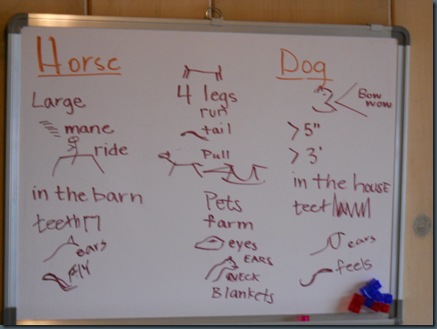 Horse
Large
mane
ride
in the barn
teeth
ears
4 legs
run
tail
Pull
Pets
farm
eyes
EARS
NECK
Blankets
Dog
Bow
wow
>5"
>3'
in the house
teet
ears
feels